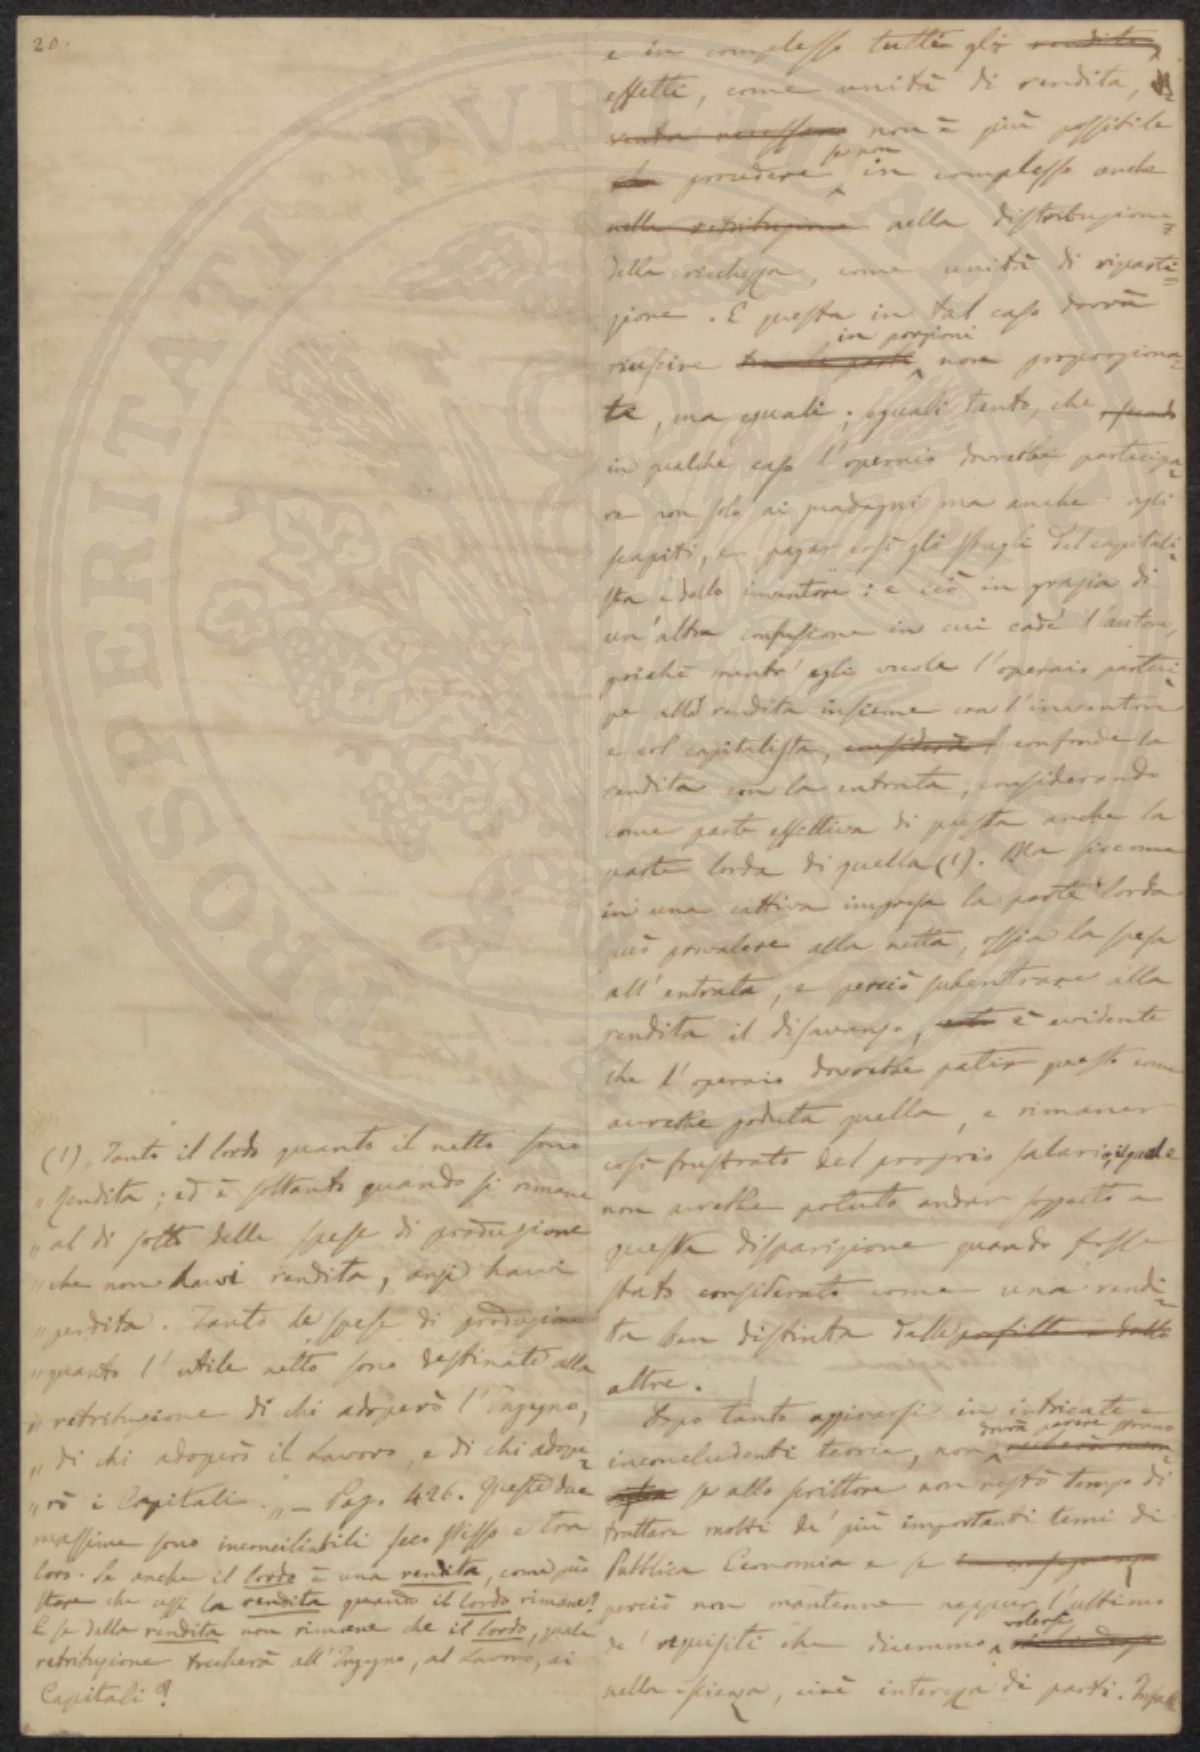 20.
e in complesso tutti gli ~~rendite,~~
effetti, come unità di rendita,
~~renda necessario~~ non è più possibile
~~che~~ procedere se non in complesso anche
~~nella retribuzione~~ nella distribuzione
della ricchezza, come unità di riparti=
zione. E questa in tal caso dovrà
riuscire in porzioni non proporziona=
te, ma eguali; eguali tanto, che
in qualche caso l'operaio dovrebbe partecipa=
re non solo ai guadagni ma anche agli
scapiti, e pagar così gli sbagli del capitali=
sta e dello inventore: e ciò in grazia di
un'altra confusione in cui cade l'autore,
poichè mentr'egli vuole l'operaio parteci=
pe alla rendita insieme con l'inventore
e col capitalista, ~~considerando~~ confonde la
rendita con la entrata, considerando
come parte effettiva di questa anche la
parte lorda di quella (1). Ma siccome
in una cattiva impresa la parte lorda
può prevalere alla netta, ossia la spesa
all'entrata, e perciò subentrare alla
rendita il disavanzo, è evidente
che l'operaio dovrebbe patir questo come
avrebbe goduta quella, e rimaner
così frustrato del proprio salario, il quale
non avrebbe potuto andar soggetto a
questa disparizione quando fosse
stato considerato come una rendi=
ta ben distinta dalle ~~profitto e dalle~~
altre.
Dopo tanto aggirarsi in intricate e
inconcludenti teorie, non dovrà parere strano
se allo scrittore non restò tempo di
trattare molti de' più importanti temi di
Pubblica Economia e se ~~in conseguenza~~
perciò non mantenne neppur l'ultimo
de' requisiti che dicemmo volersi ~~richiedersi~~
nella scienza, cioè interezza di parti.
(1) „ Tanto il lordo quanto il netto sono
„ Rendita; ed è soltanto quando si rimane
„ al di sotto delle spese di produzione
„ che non havvi rendita, anzi havvi
„ perdita. Tanto le spese di produzione
„ quanto l'utile netto sono destinate alla
„ retribuzione di chi adoperò l'Ingegno,
„ di chi adoperò il Lavoro, e di chi adope=
„ rò i Capitali. „ — Pag. 426. Queste due
massime sono inconciliabili seco stesse e tra
loro. Se anche il lordo è una rendita, come può
stare che cessi la rendita quando il lordo rimane?
E se della rendita non rimane che il lordo, quale
retribuzione toccherà all'Ingegno, al Lavoro, ai
Capitali?
PROSPERITATI PVBLICAE